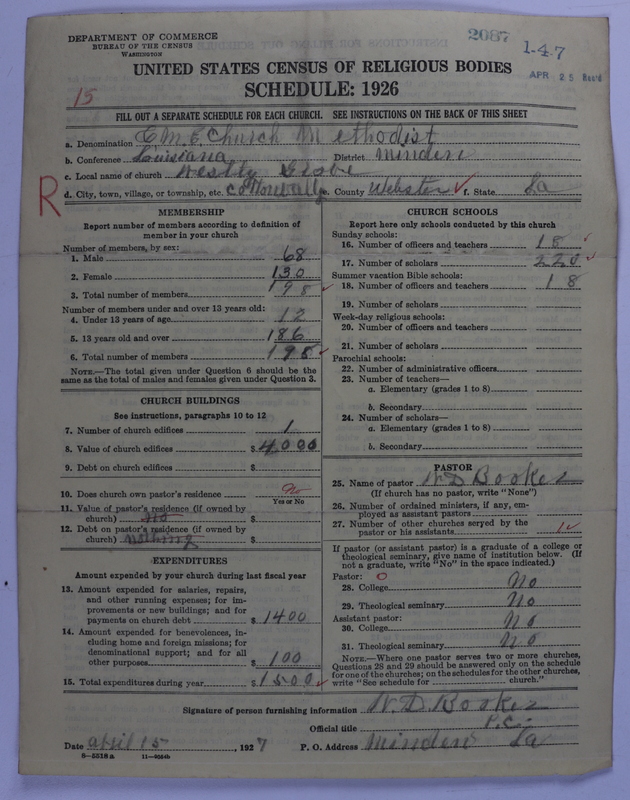 DEPARTMENT OF COMMERCE
BUREAU OF THE CENSUS
WASHINGTON
2087
1-4-7
APR 25 Rec'd
UNITED STATES CENSUS OF RELIGIOUS BODIES
SCHEDULE: 1926
15
FILL OUT A SEPARATE SCHEDULE FOR EACH CHURCH. SEE INSTRUCTIONS ON THE BACK OF THIS SHEET
a. Denomination C M. E. Church Methodist
b. Conference Luisiana District Minden
c. Local name of church Westly Grobe
d. City, town, village, or township, etc. Cottonvally e. County Webster ✓ f. State La
R
MEMBERSHIP
Report number of members according to definition of
member in your church
Number of members, by sex:
1. Male 68
2. Female 130
3. Total number of members 198 ✓
Number of members under and over 13 years old:
4. Under 13 years of age 12
5. 13 years old and over 186
6. Total number of members 198 ✓
NOTE.—The total given under Question 6 should be the
same as the total of males and females given under Question 3.
CHURCH BUILDINGS
See instructions, paragraphs 10 to 12
7. Number of church edifices 1
8. Value of church edifices $ 4000
9. Debt on church edifices $
10. Does church own pastor's residence No
Yes or No
11. Value of pastor's residence (if owned by
church) no $
12. Debt on pastor's residence (if owned by
church) nothing $
EXPENDITURES
Amount expended by your church during last fiscal year
13. Amount expended for salaries, repairs,
and other running expenses; for im-
provements or new buildings; and for
payments on church debt $ 1400
14. Amount expended for benevolences, in-
cluding home and foreign missions; for
denominational support; and for all
other purposes $ 100
15. Total expenditures during year $ 1500 ✓
CHURCH SCHOOLS
Report here only schools conducted by this church
Sunday schools:
16. Number of officers and teachers 18 ✓
17. Number of scholars 220 ✓
Summer vacation Bible schools:
18. Number of officers and teachers 18
19. Number of scholars
Week-day religious schools:
20. Number of officers and teachers
21. Number of scholars
Parochial schools:
22. Number of administrative officers
23. Number of teachers—
a. Elementary (grades 1 to 8)
b. Secondary
24. Number of scholars—
a. Elementary (grades 1 to 8)
b. Secondary
PASTOR
25. Name of pastor W D Booker
(If church has no pastor, write "None")
26. Number of ordained ministers, if any, em-
ployed as assistant pastors
27. Number of other churches served by the
pastor or his assistants 1 ✓
If pastor (or assistant pastor) is a graduate of a college or
theological seminary, give name of institution below. (If
not a graduate, write "No" in the space indicated.)
Pastor: O
28. College No
29. Theological seminary No
Assistant pastor:
30. College No
31. Theological seminary No
NOTE.—Where one pastor serves two or more churches,
Questions 28 and 29 should be answered only on the schedule
for one of the churches; on the schedules for the other churches,
write "See schedule for church."
Signature of person furnishing information W. D. Booker
Official title P.C.
Date april 15, 1927 P. O. Address Minden La
8-5518a 11-9054b